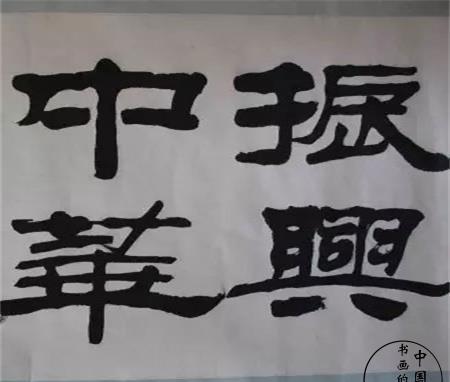 振興
中華
中国
书画的